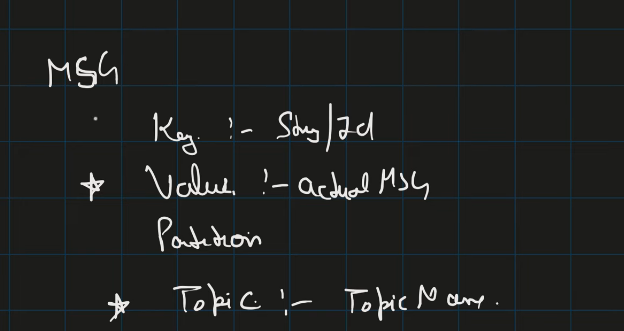 MSG
Key :- Stng/Id
★ Value :- actual MSG
Partition
★ Topic :- Topic Name.